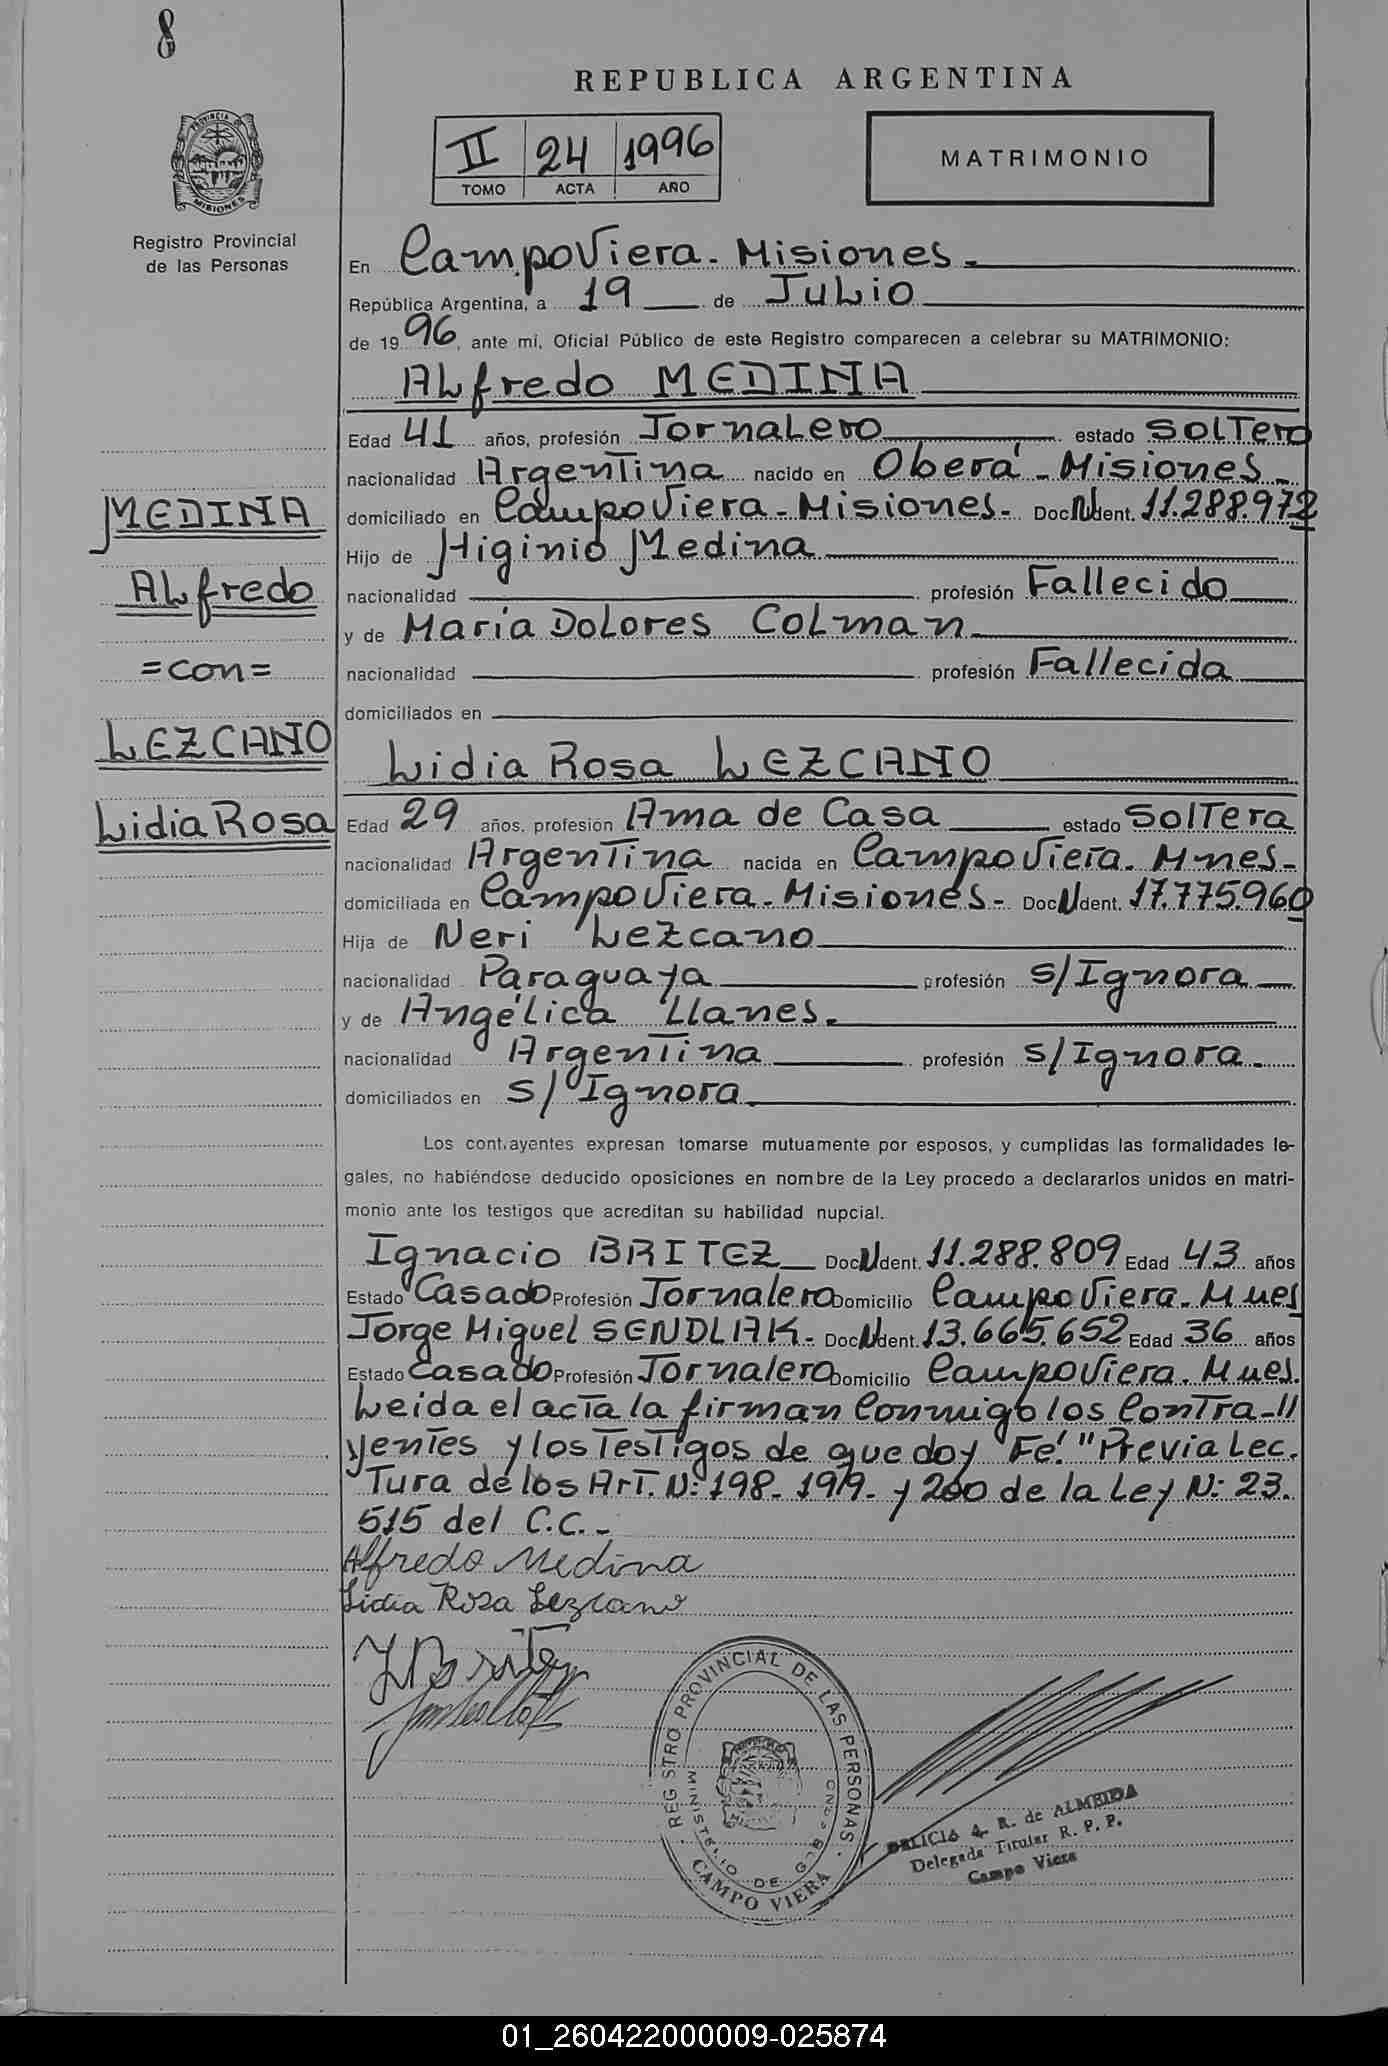 8
REPUBLICA ARGENTINA
II 24 1996
TOMO ACTA AÑO
MATRIMONIO
PROVINCIA DE
MISIONES
Registro Provincial
de las Personas
En Campo Viera - Misiones.
República Argentina, a 19 de Julio
de 1996, ante mí, Oficial Público de este Registro comparecen a celebrar su MATRIMONIO:
Alfredo MEDINA
Edad 41 años, profesión Jornalero estado Soltero
nacionalidad Argentina nacido en Oberá - Misiones -
MEDINA
domiciliado en Campo Viera - Misiones - Doc N Ident. 11.288.972
Hijo de Higinio Medina
Alfredo
nacionalidad profesión Fallecido
y de Maria Dolores Colman
=con=
nacionalidad profesión Fallecida
domiciliados en
LEZCANO
Lidia Rosa LEZCANO
Lidia Rosa
Edad 29 años, profesión Ama de Casa estado Soltera
nacionalidad Argentina nacida en Campo Viera. Mnes-
domiciliada en Campo Viera - Misiones - Doc N Ident. 17.775.960
Hija de Neri Lezcano
nacionalidad Paraguaya profesión s/Ignora
y de Angélica Llanes.
nacionalidad Argentina profesión s/Ignora.
domiciliados en s/Ignora.
Los contrayentes expresan tomarse mutuamente por esposos, y cumplidas las formalidades le-
gales, no habiéndose deducido oposiciones en nombre de la Ley procedo a declararlos unidos en matri-
monio ante los testigos que acreditan su habilidad nupcial.
Ignacio BRITEZ Doc N Ident. 11.288.809 Edad 43 años
Estado Casado Profesión Jornalero Domicilio Campo Viera. Mnes
Jorge Miguel SENDLIAK- Doc N Ident. 13.665.652 Edad 36 años
Estado Casado Profesión Jornalero Domicilio Campo Viera. Mnes.
Leida el acta la firman Conmigo los Contra-//
yentes y los Testigos de que doy "Fe." "Previa Lec.
Tura de los Art. N: 198- 199- y 200 de la Ley N: 23.
515 del C.C.-
Alfredo Medina
Lidia Rosa Lezcano
I Britez
REGISTRO PROVINCIAL DE LAS PERSONAS
CAMPO VIERA
DELICIA A. R. de ALMEIDA
Delegada Titular R. P. P.
Campo Viera
01_260422000009-025874